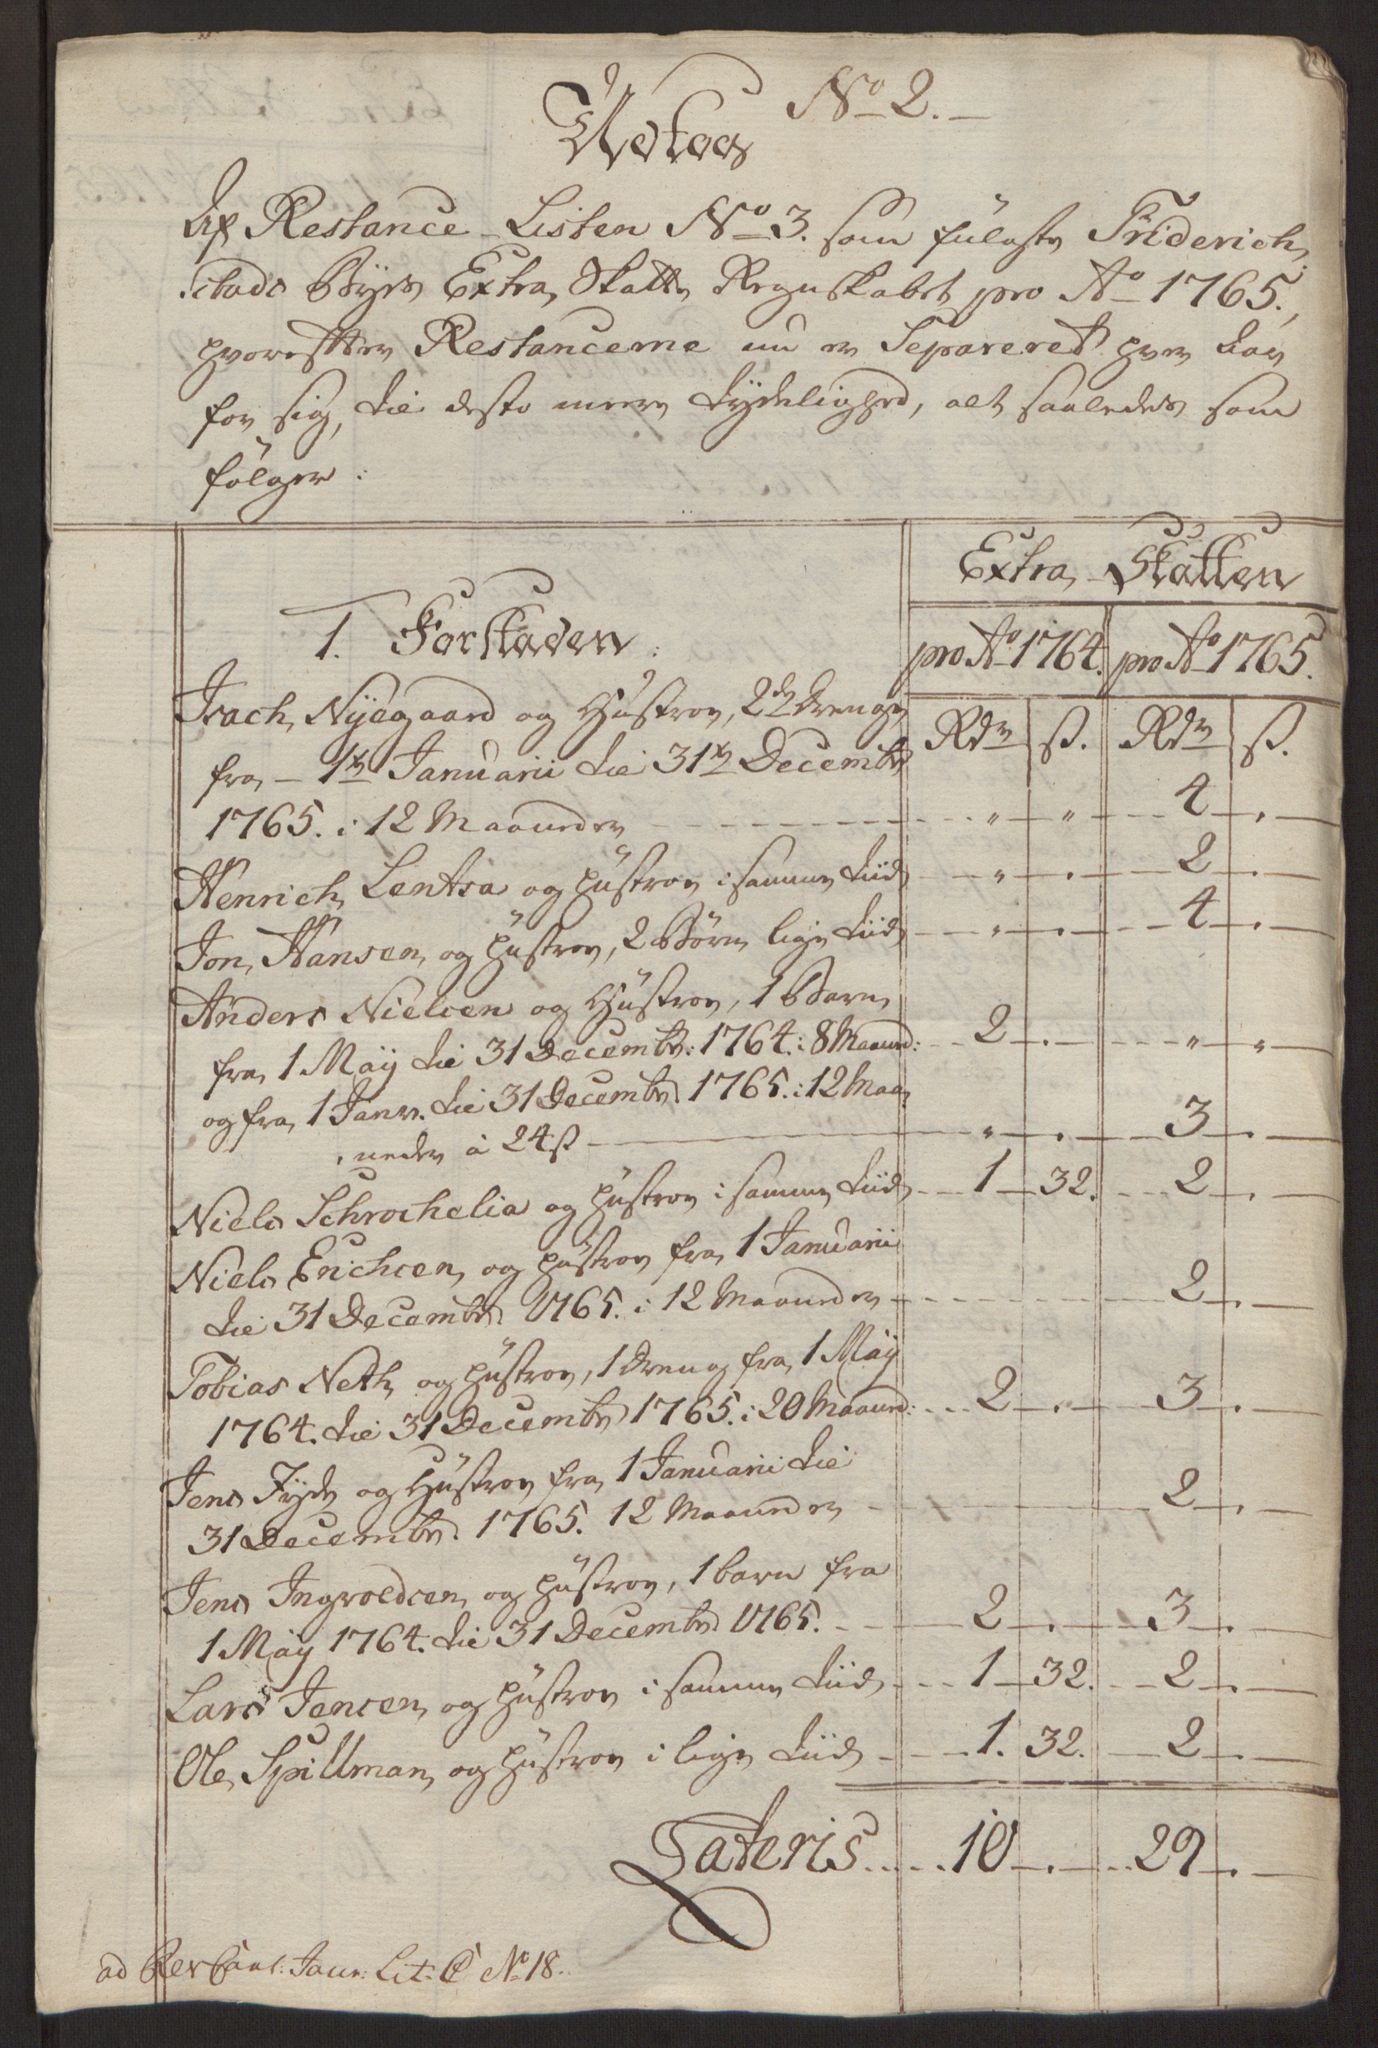 No 2.
Af Restance-Listen No 3. som fulgte Friderich,
stads Byes Extra Skatte Regnskabet pro Ao 1765.,
hvorefter Restancerne nu er Separeret hver Rode
for sig, til desto meere Tydelighed, alt saaledes som
følger:
Extra Skatten
1. Forstaden.
pro Ao 1764. pro Ao 1765.
Rdr ß. Rdr ß.
Isach Nyegaard og Hustroe, 2de Drenge
fra 1te Januarii til 31te Decembr
1765. i 12 Maaneder " " 4 .
Henrich Lentsa og hustroe i samme Tiid " . 2 .
Jon Hansen og hustroe, 2 Børn lige Tiid " . 4 .
Anders Nielsen og Hustroe, 1 Barn
fra 1 Maÿ til 31 Decembr: 1764. i 8 Maaned: 2 . " "
og fra 1 Janr. til 31 Decembr 1765. i 12 Maa,
,neder à 24 ß " . 3 .
Niels Schrochelia og hustroe i samme Tiid 1 32. 2 .
Niels Erichsen og hustroe fra 1 Januarii
til 31 Decembr 1765. i 12 Maaneder 2 .
Tobias Neth og hustroe, 1 Dreng fra 1 Maÿ
1764. til 31 Decembr 1765. i 20 Maaned: 2 . 3 .
Jens Fyde og Hustroe fra 1 Januarii til
31 Decembr. 1765. 12 Maaneder 2 .
Jens Ingvoldsen og hustroe, 1 barn fra
1 Maÿ 1764. til 31 Decembr 1765. 2 . 3 .
Lars Jensen og hustroe i samme Tiid 1 32. 2 .
Ole Spillman og hustroe i lige Tiid 1. 32. 2 .
Lateris 10 . 29 .
ad Lit: C No 18.